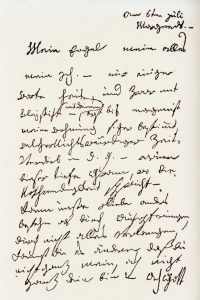 am 6ten Juli
Morgends. –
Mein Engel, mein alles
mein Ich. – nur einige
Worte heute, und zwar mit
Bleystift
bis morgen ist
meine Wohnung sicher bestimmt,
Zeit-
verderb in d. g. – warum
dieser tiefe Gram, wo die
Nothwendigkeit spricht –
Kann unsre Liebe anders
bestehn als durch Aufopferungen,
durch nicht alles verlangen,
kannst du es ändern, daß du
nicht ganz mein, ich nicht
ganz dein bin – Ach Gott